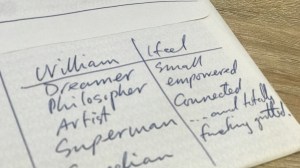 William
Dreamer
Philosopher
Artist
Superman
I feel
small
empowered
Connected
...and totally
fucking gutted.